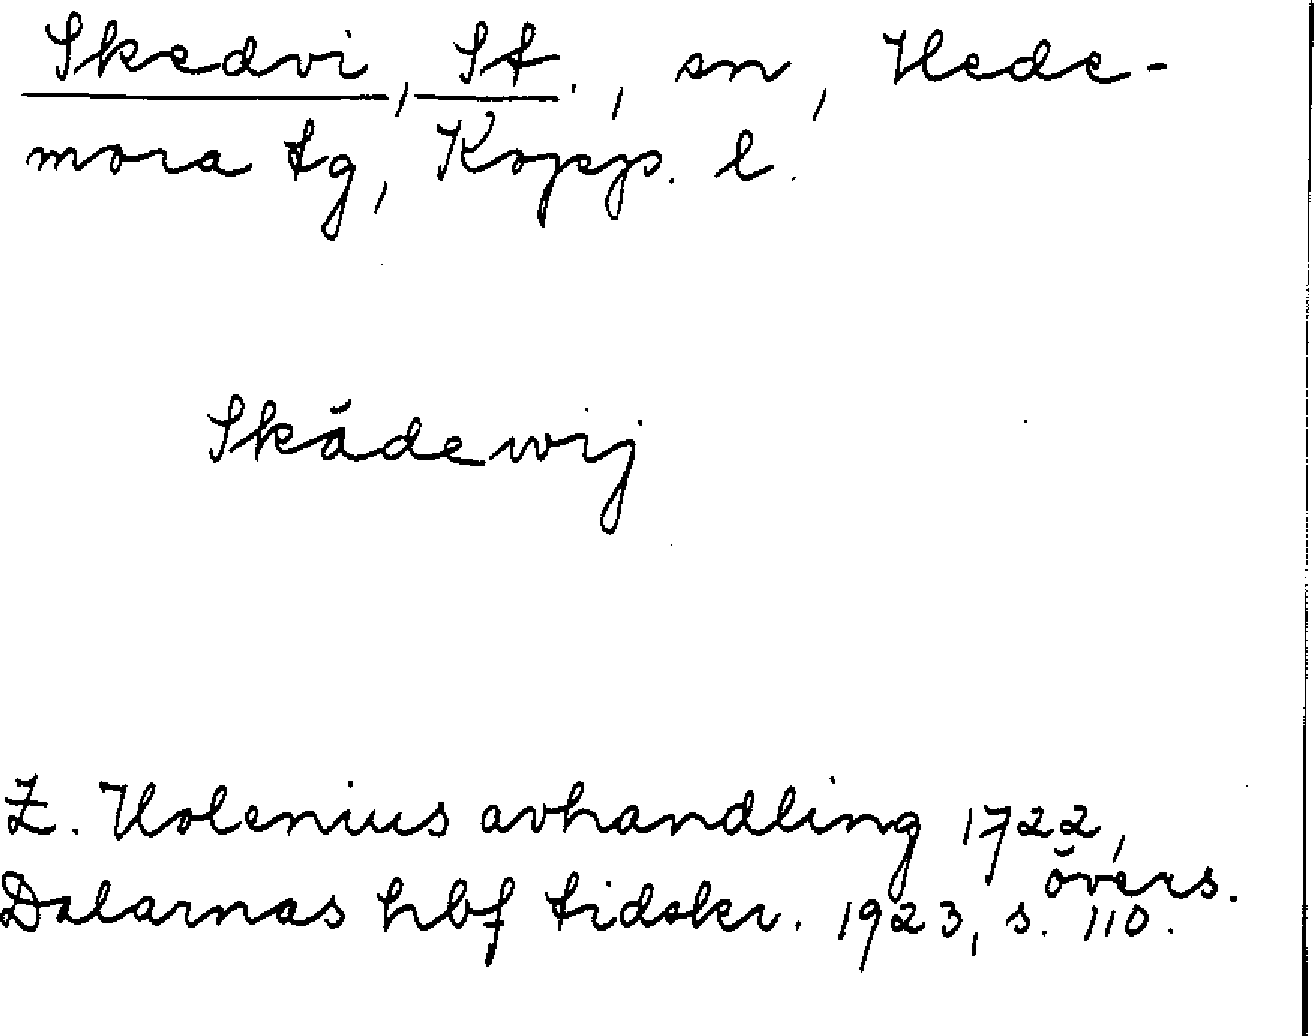 Skedvi, St., sn, Hede-
mora tg, Kopp. l.
Skädewij
Z. Holenius avhandling 1722,
övers.
Dalarnas hbf tidskr. 1923, s. 110.